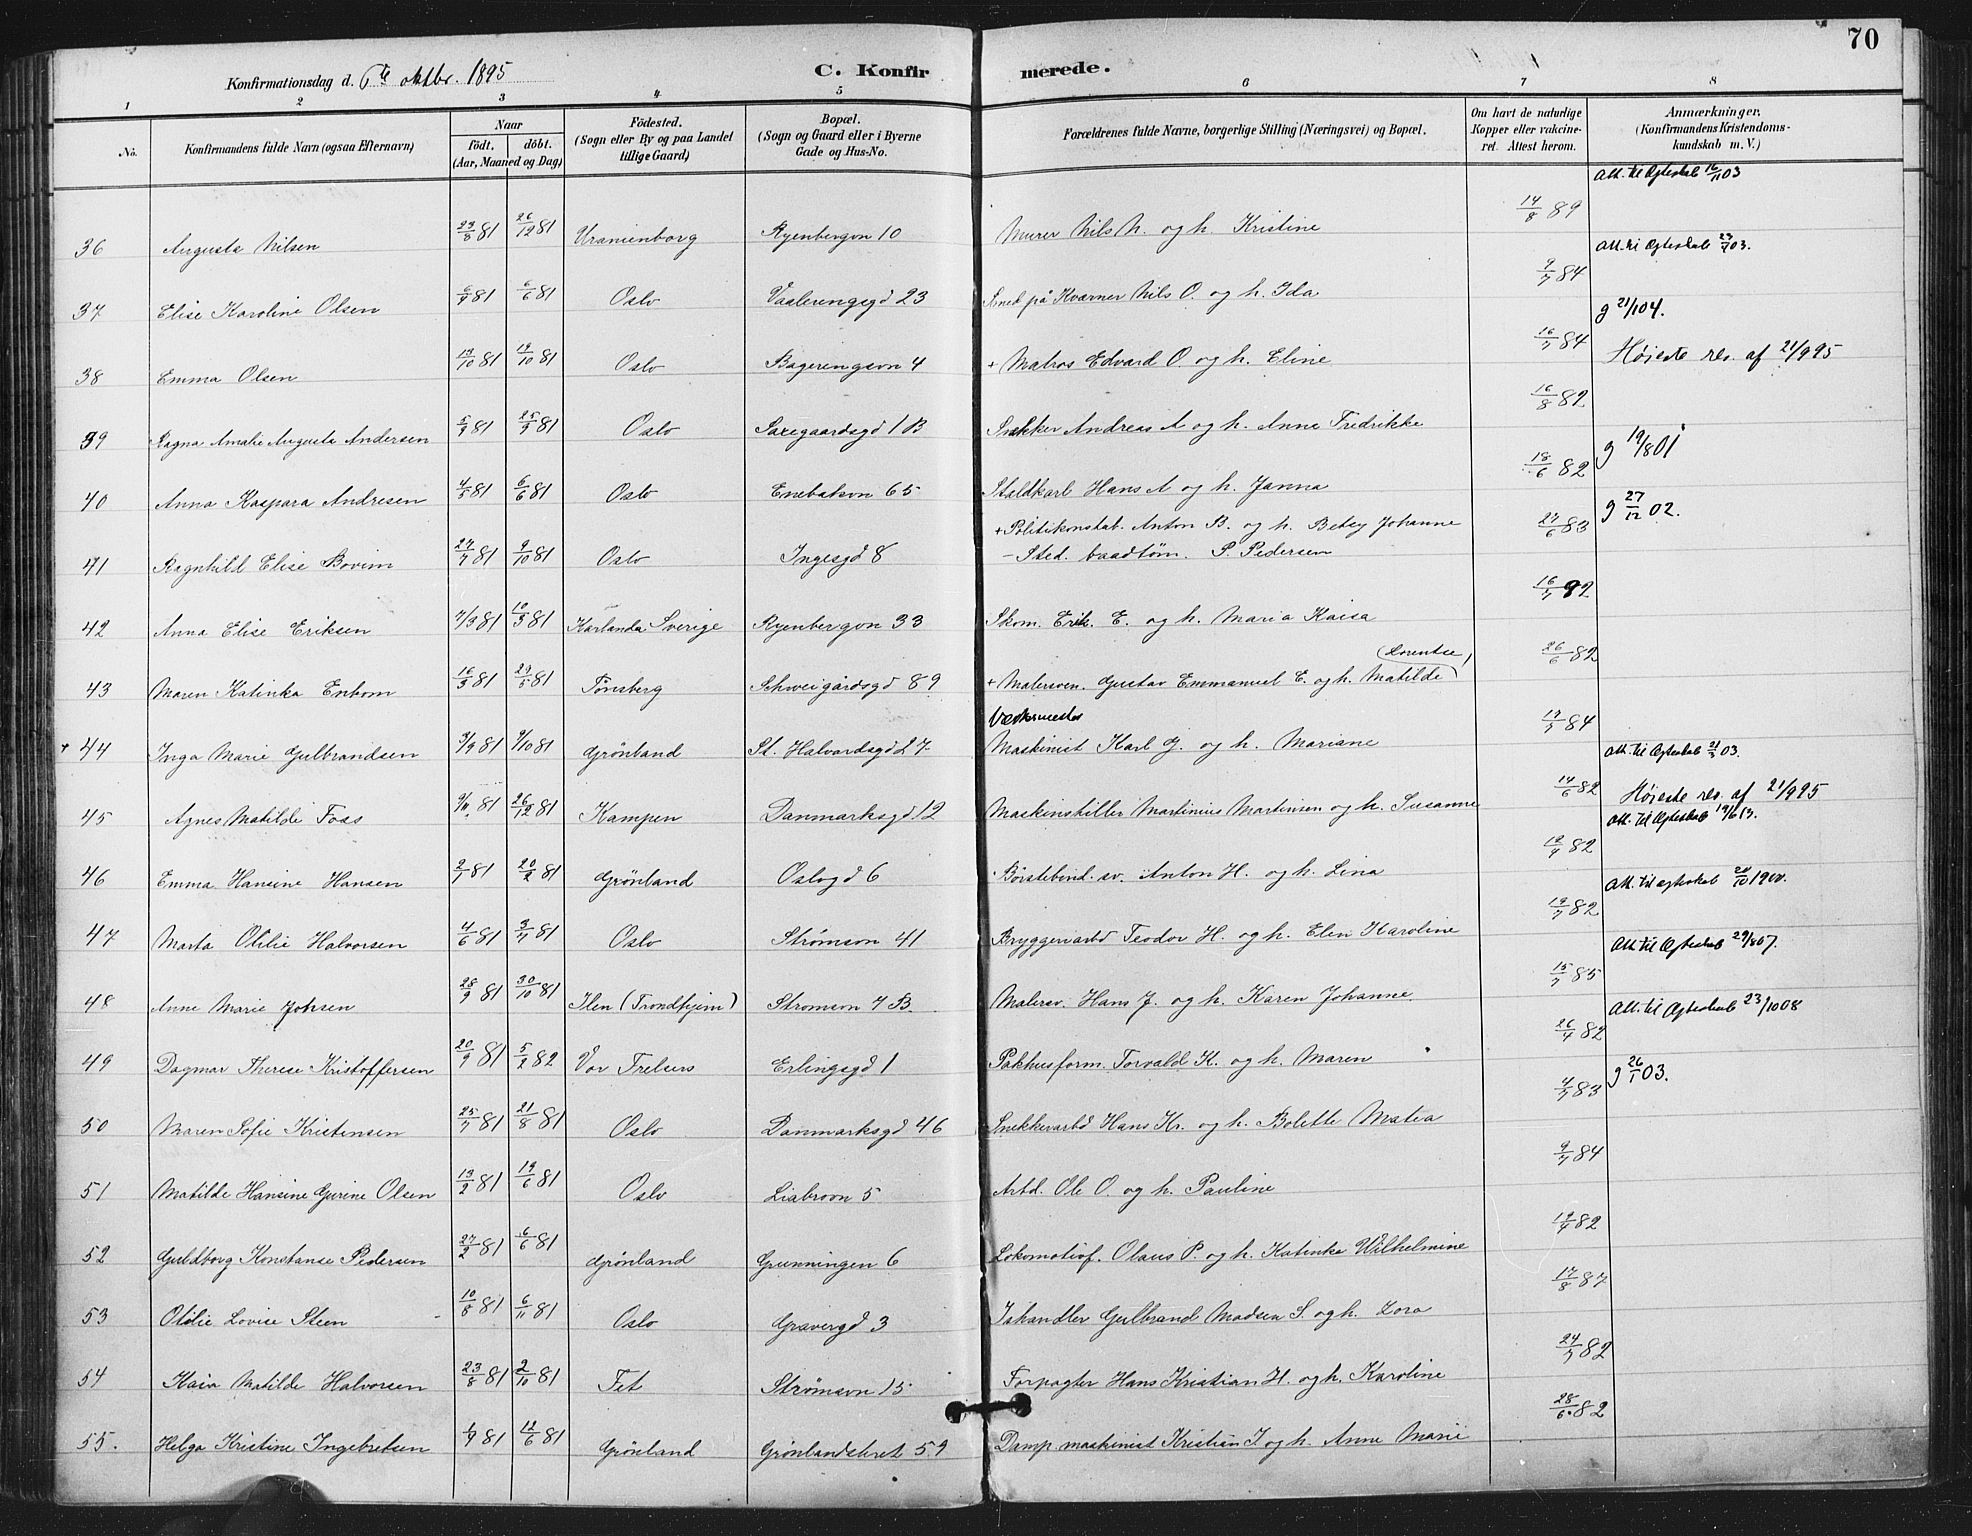 70
Konfirmationsdag d. 6te oktbr. 1895 C. Konfirmerede.
1 2 3 4 5 6 7 8
No. Konfirmandens fulde Navn (ogsaa Efternavn) Naar födt. döbt. (Aar, Maaned og Dag) Födested. (Sogn eller By og paa Landet tillige Gaard) Bopæl. (Sogn og Gaard eller i Byerne Gade og Hus-No. Forældrenes fulde Navne, borgerlige Stilling (Næringsvei) og Bopæl. Om havt de naturlige Kopper eller vakcineret. Attest herom. Anmærkninger. (Konfirmandens Kristendomskundskab m. V.)
36 Augusta Nilsen 23/8 81 26/12 81 Uranienborg Ryenbergvn 10 Murer Nils N. og h. Kristine 14/8 89 Att. til Ægteskab 16/11 03
37 Elise Karoline Olsen 81 6/6 81 Oslo Vaalerengsgd 23 Smed på Kværner Nils O. og h. Ida 9/7 84 Att. til Ægteskab 03.
38 Emma Olsen 81 81 Oslo Bagerengsvn 4 + Matros Edvard O. og h. Eline 16/7 84 g 21/1 04. Höieste res. af 21/9 95
39 Ragna Amalie Augusta Andersen 81 81 Oslo Saxegaardsgd 1 B Snekker Andreas A og h. Anne Fredrikke 16/8 82
40 Anna Kaspara Andresen 4/5 81 6/6 81 Oslo Enebakvn 65 Staldkarl Hans A og h. Janna 18/6 82 g 19/8 01
41 Ragnhild Elise Bovim 27/7 81 9/10 81 Oslo Ingesgd 8 + Politikonstab. Anton B. og h. Betsy Johanne - Sted. baadtöm. P. Pedersen 27/6 83 g 27/12 02.
42 Anna Elise Eriksen 7/3 81 81 Karlanda Sverige Ryenbergvn 33 Skom. Erik. E. og h. Maria Kaisa 16/7 92
43 Maren Katinka Enbom 16/3 81 29/5 81 Tönsberg Schweigårdsgd 89 + Malersven. Gustav Emmanuel E. og h. Matilde (Lorentse) 26/6 82
44 Inga Marie Gulbrandsen 3/9 81 81 Grönland St. Halvardsgd 27 Værksmester Maskinist Karl G. og h. Mariane 84
45 Agnes Matilde Foss 81 26/12 81 Kampen Danmarksgd 12 Maskinstiller Martinius Martinsen og h. Susanne 14/6 82 Att. til Ægteskab 03. Höieste res. af 21/9 95
46 Emma Hansine Hansen 2/1 81 20/2 81 Grönland Oslogd 6 Börstebind. sv. Anton H. og h. Lina 82 Att. til Ægteskab 19/6 13.
47 Marta Otilie Halvorsen 4/6 81 3/7 81 Oslo Strömsvn 41 Bryggeriarbd Teodor H. og h. Elen Karoline 82 Att. til ægteskab 1900.
48 Anne Marie Johsen 28/9 81 30/10 81 Ilen (Trondhjem) Strömsvn 4 B. Malersv. Hans J. og h. Karen Johanne 15/7 85 Att. til Ægteskab 29/8 07.
49 Dagmar Therese Kristoffersen 20/9 81 5/2 82 Vor Frelsers Erlingsgd 1 Pakhusform. Torvald K. og h. Maren 26/4 82 Att. til Ægteskab 23/10 08
50 Maren Sofie Kristensen 25/7 81 21/8 81 Oslo Danmarksgd 46 Snekkerarbd Hans Kr. og h. Bolette Matea 83 g 26/1 03.
51 Matilde Hansine Gurine Olsen 81 19/6 81 Oslo Liabrovn 5 Arbd. Ole O. og h. Pauline 9/7 84
52 Guldborg Konstanse Pedersen 27/2 81 6/6 81 Grönland Grunningen 6 Lokomotivf. Olaus P. og h. Katinka Wilhelmine 82
53 Otilie Lovise Steen 10/8 81 6/11 81 Oslo Gravergd 3 Ishandler Gulbrand Madsen S. og h. Lora 17/8 87
54 Kaia Matilde Halvorsen 23/8 81 2/10 81 Fet Strömsvn 15 Forpagter Hans Kristian H. og h. Karoline 24/7 82
55. Helga Kristine Ingebretsen 81 12/6 81 Grönland Grönlandsleret 59 Damp maskinist Kristian I og h. Anne Marie 28/6 82